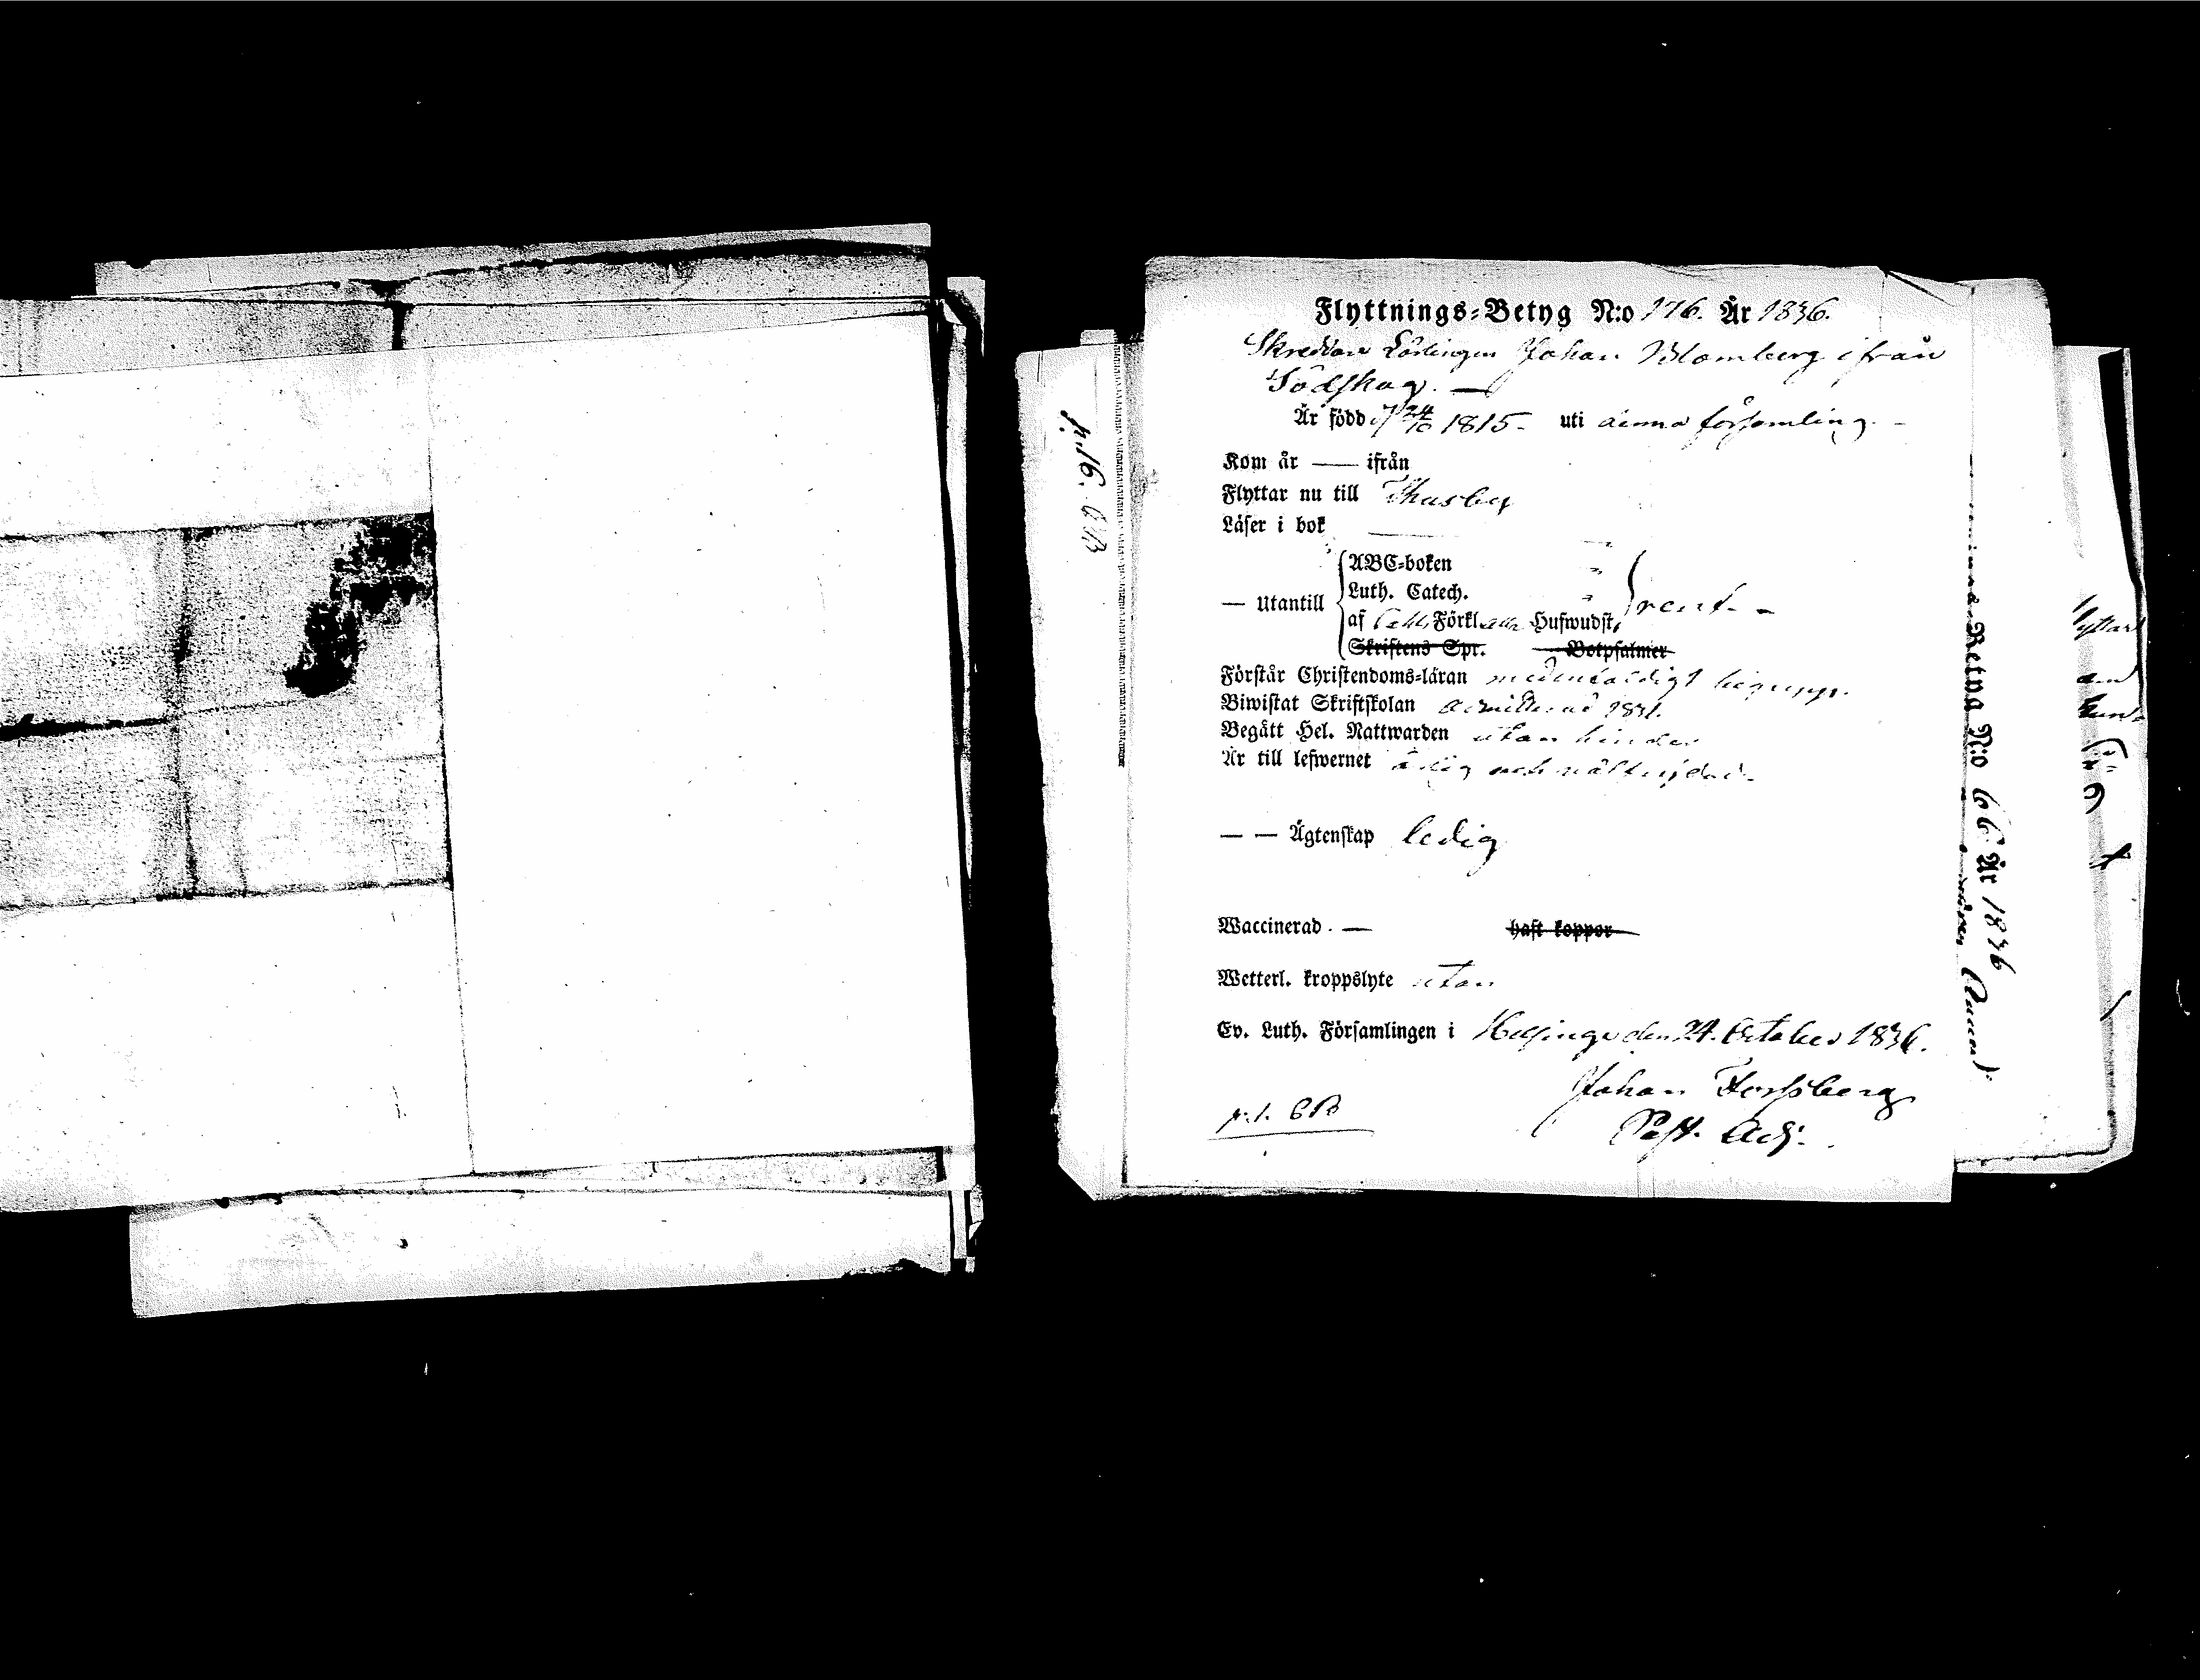 Flyttnings-Betyg N:o 176. År 1836.
Skreddare Lärlingen Johan Blomberg ifrån
Södskog. —
Är född d 24/10 1815. uti denna församling. -
Kom år — ifrån
Flyttar nu till Thusby
Läser i bok —
— Utantill
ABC-boken "
Luth. Catech. "
af Förkl. Hufwudst. rent. -
Skriftens Spr. Botpsalmer
Förstår Christendoms-läran begrepp.
Biwistat Skriftskolan admitterad 1831.
Begått Hel. Nattwarden utan hinder
Är till lefwernet ärlig och wälfrejdad.
— — Ägtenskap ledig
Waccinerad. — haft koppor
Wetterl. kroppslyte utan
Ev. Luth. Församlingen i Helsinge den 24. October 1836.
Johan Forssberg
Past. Adj.
p. 1. 6B
p. 16.
Betyg N:o 66 År 1836